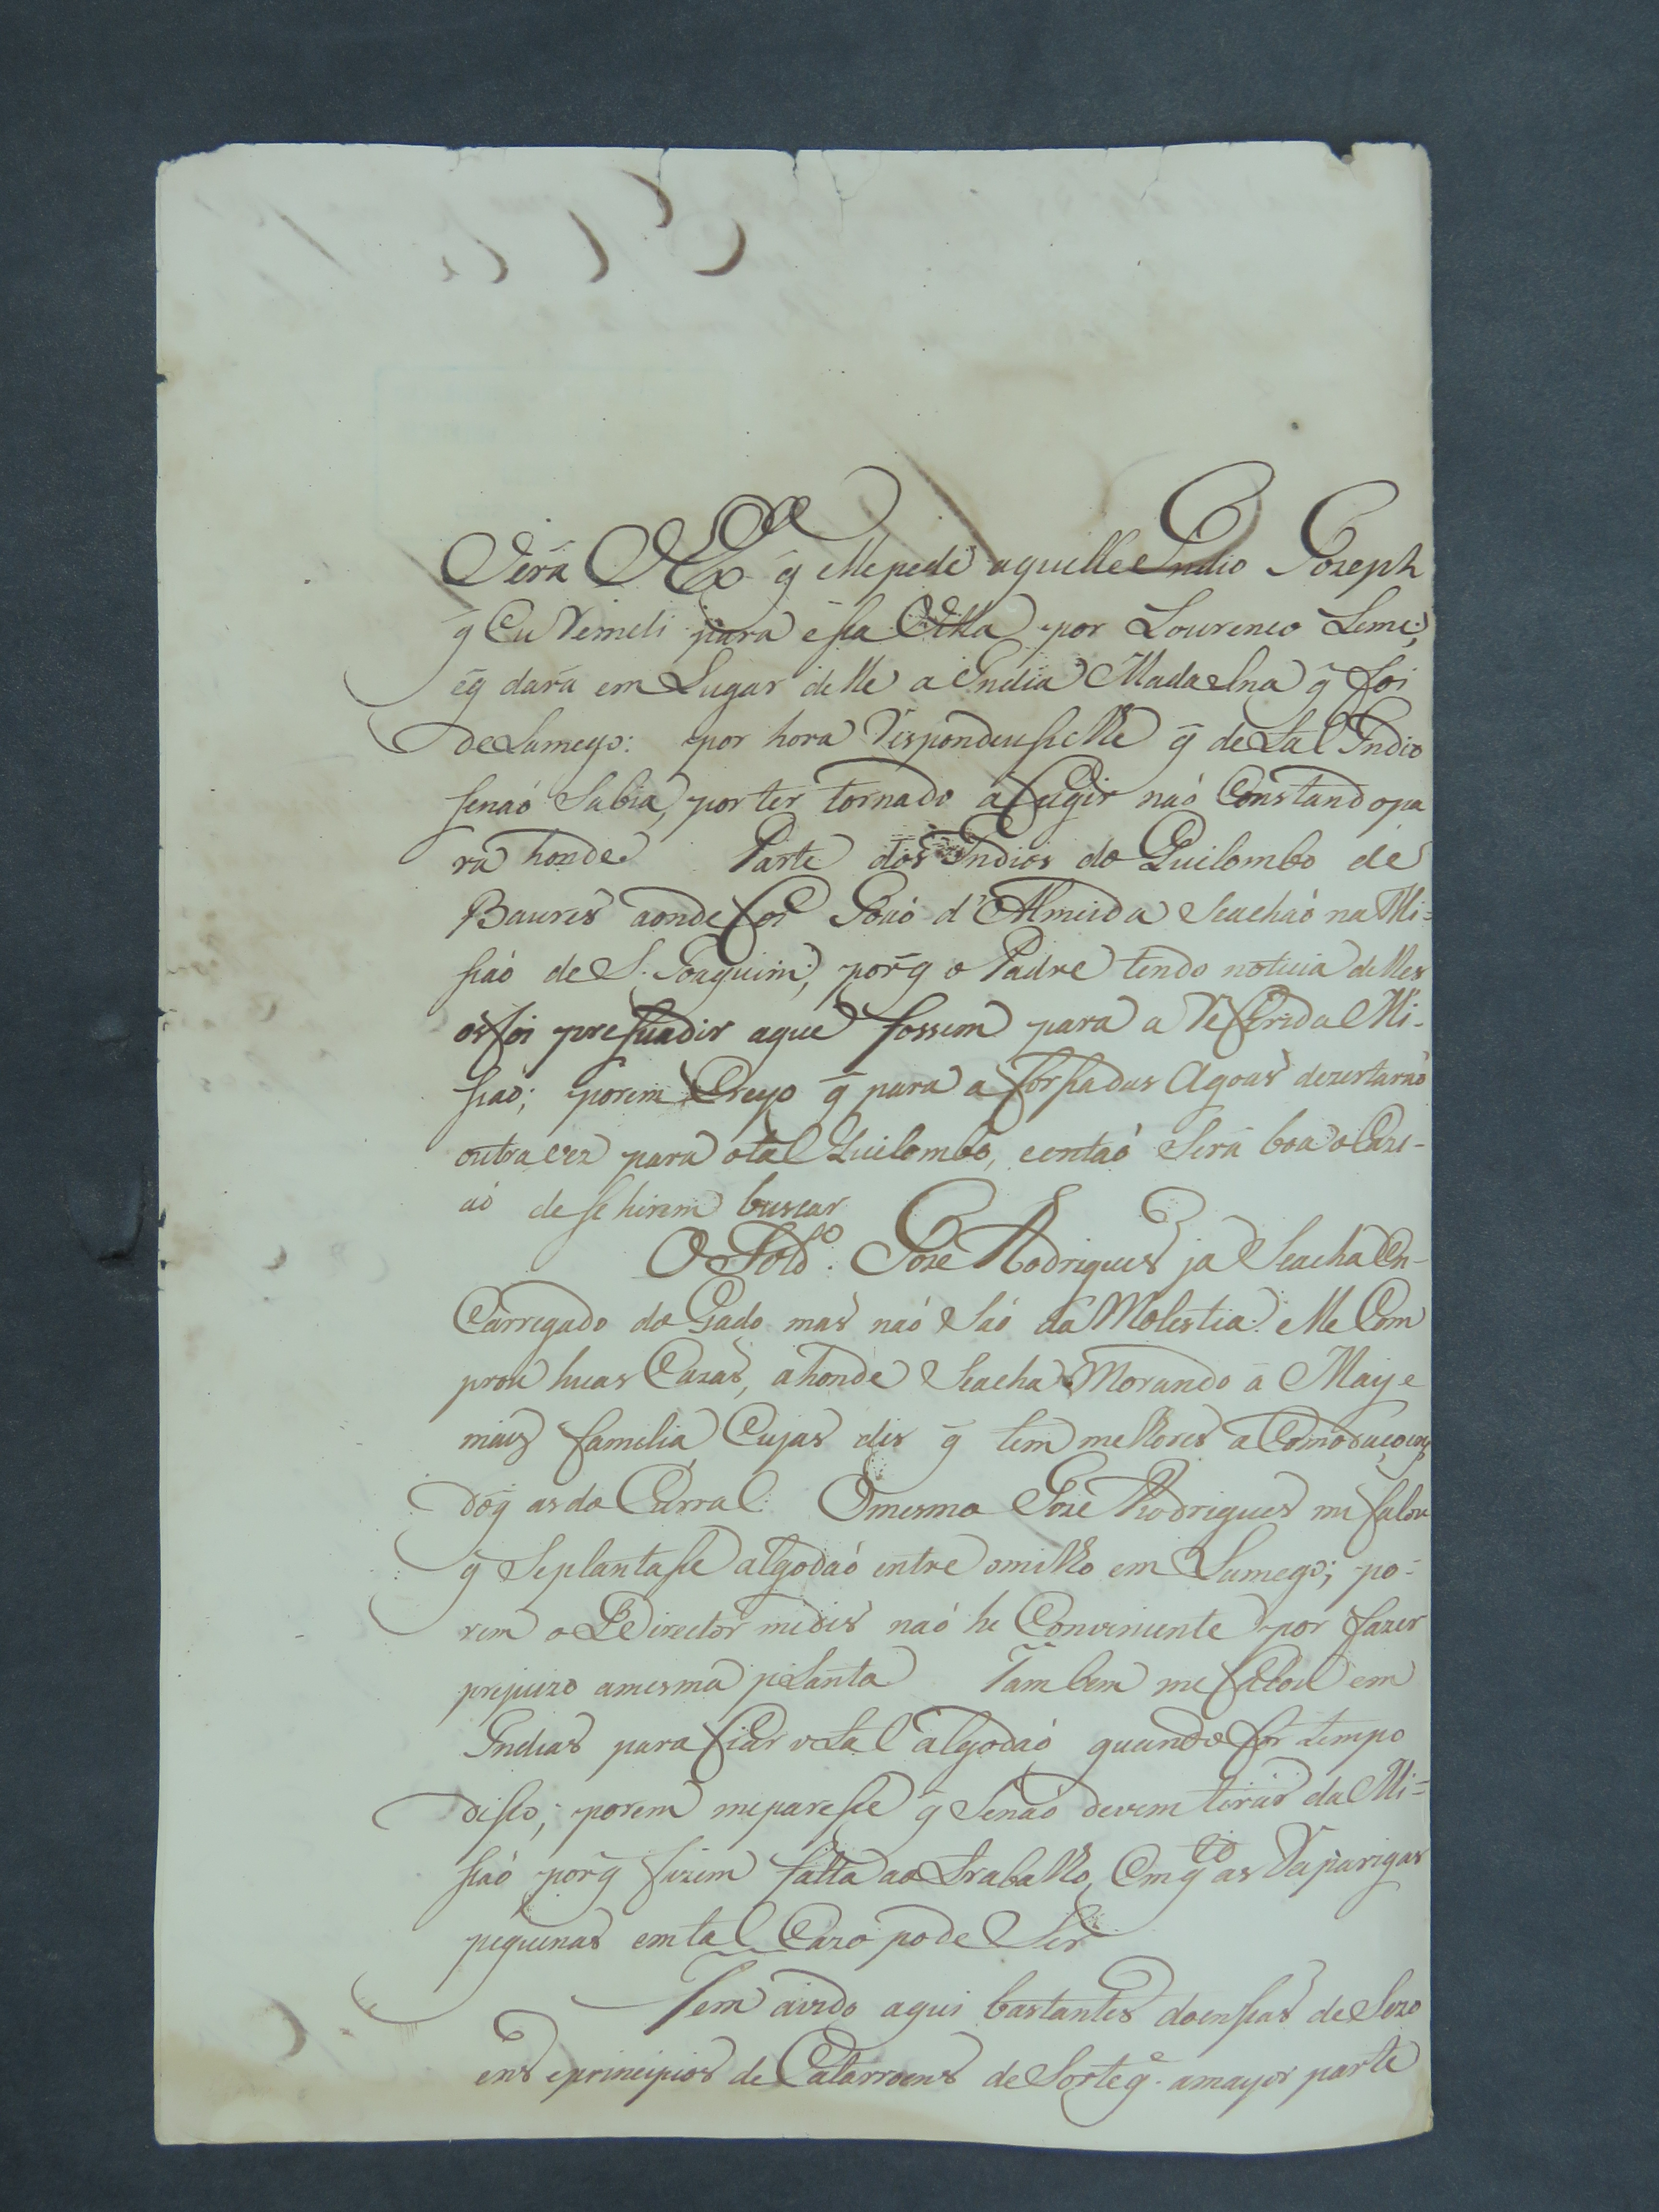 Verá VEx.ª q̃ elle pede aquelle Indio Jozeph
q̃ Eu Remeti para essa Villa por Lourenco Leme;
eq̃ dará em Lugar delle a India Madaelna q̃ foi
de Lamego: por hora Respondeuselhe q̃ de tal Indio
senaó Sabia, por ter tornado afugir naó Constando pa
ra honde. Parte dos Indios do Quilombo de
Baures aonde foi Joaó d'Almeida Seachaó na Mi=
siaó de S. Joaquim; porq̃ o Padre tendo noticia delles
os foi presuadir aque fossem para a Referida Mi-
siaó; porem Creyo q̃ para a forsa das Agoas dezertaraó
outra vez para otal Quilombo, eentaó Será boa o Cazi-
aó de se hirem buscar
O Sold.º Joze Rodrigues ja Seacha En-
Carregado do Gado mas naó Saó da Molestia: elle Com
prou huas Cazas, ahonde Seacha Morando a May e
mais familia Cujas dis q̃ tem melhores aComodaçoens
doq̃ as do Curral: O mesmo Joze Rodrigues me falou
q̃ Seplantase algodaó entre omilho em Lamego; po-
rem o Director medis naó he Conveniente por fazer
prejuizo amesma pLanta Tambem me falou em
Indias para fiar otal algodaó quando for tempo
disso; porem meparesse q̃ Senaó devem tirar da Mi=
siaó porq̃ fazem falta ao trabalho, Emq̃to as Raparigas
piquenas emtal Cazo pode Ser
Tem avido aqui bastantes doensas de Sezo
ens eprincipios de Catarroens de Sorte q̃.e amayor parte